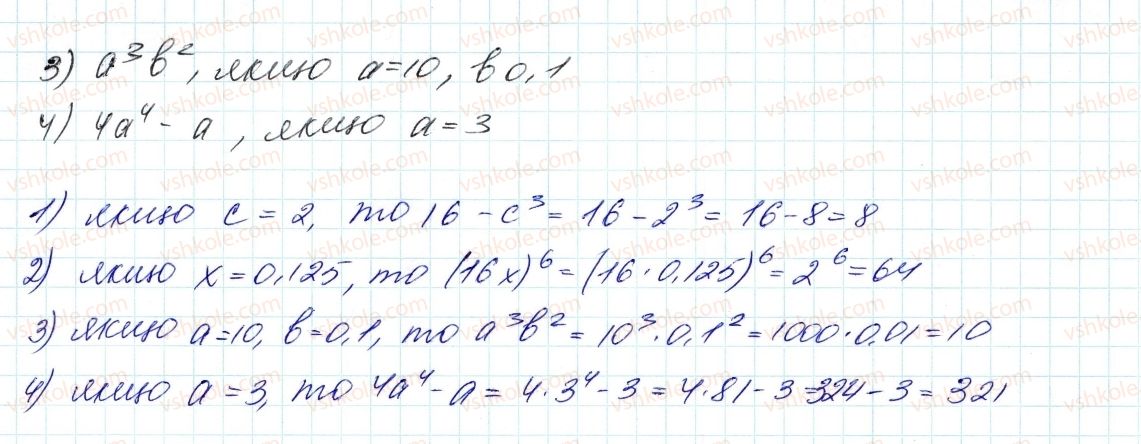 3) a³b², якщо a=10, b 0,1
4) 4a⁴ - a, якщо a = 3
1) якщо c = 2, то 16 - c³ = 16 - 2³ = 16 - 8 = 8
2) якщо x = 0,125, то (16x)⁶ = (16 · 0,125)⁶ = 2⁶ = 64
3) якщо a=10, b=0,1, то a³b² = 10³ · 0,1² = 1000 · 0,01 = 10
4) якщо a = 3, то 4a⁴ - a = 4 · 3⁴ - 3 = 4 · 81 - 3 = 324 - 3 = 321